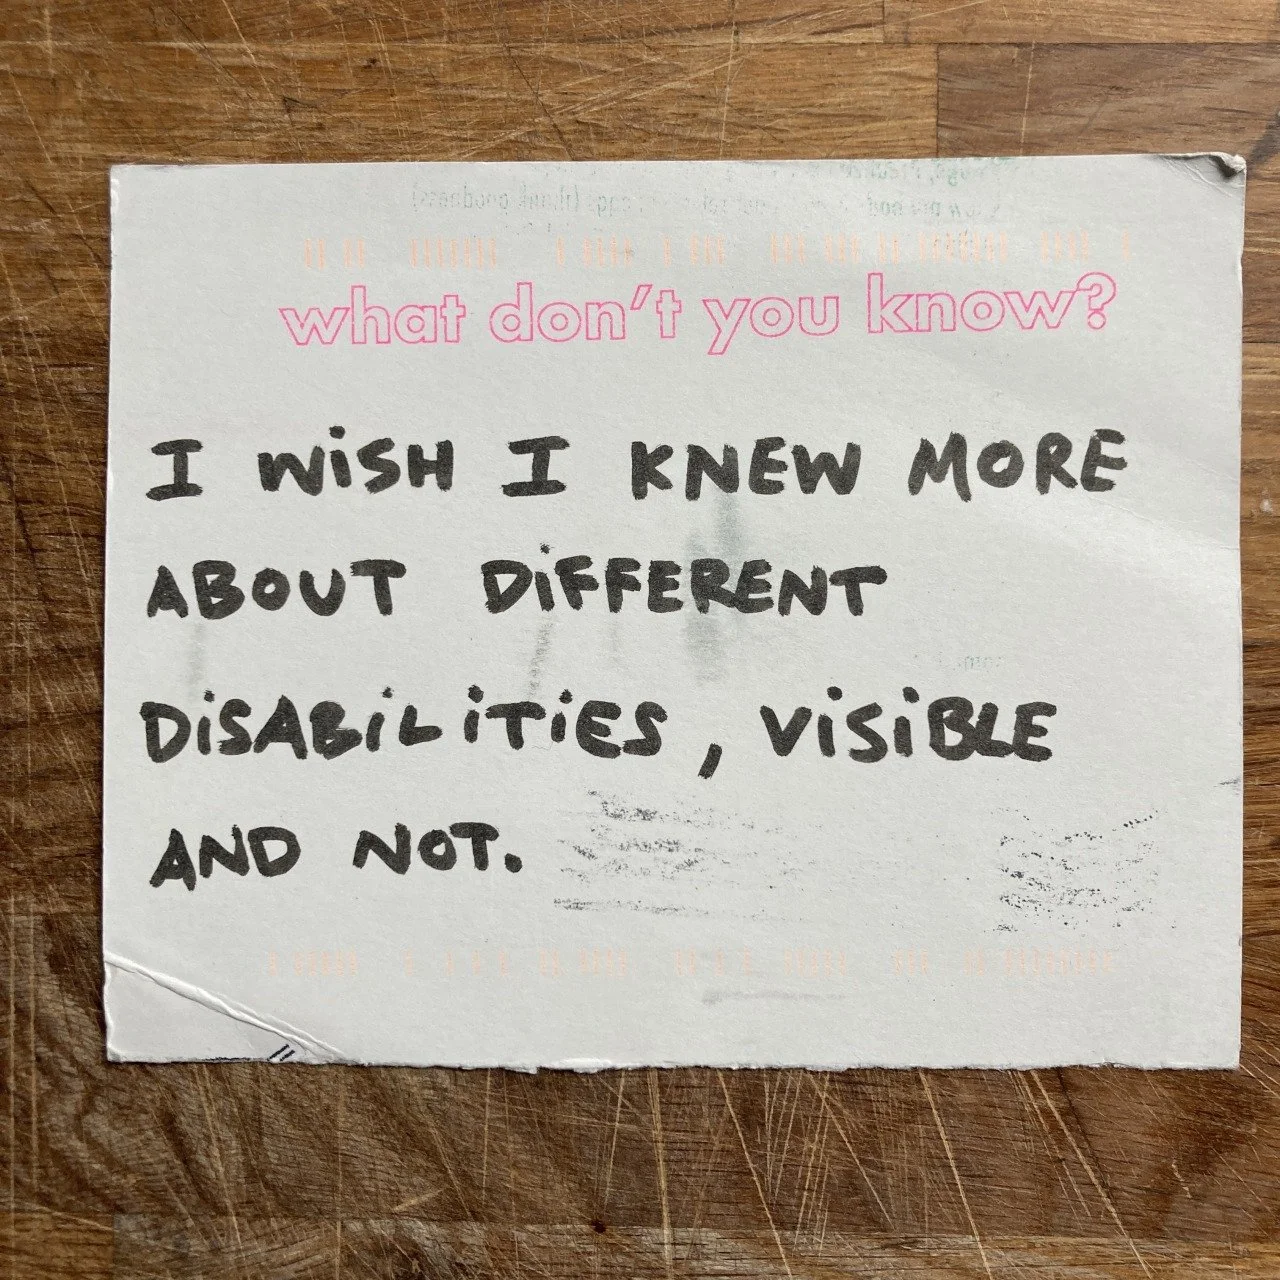 what don't you know?
I WISH I KNEW MORE
ABOUT DIFFERENT
DISABILITIES, VISIBLE
AND NOT.